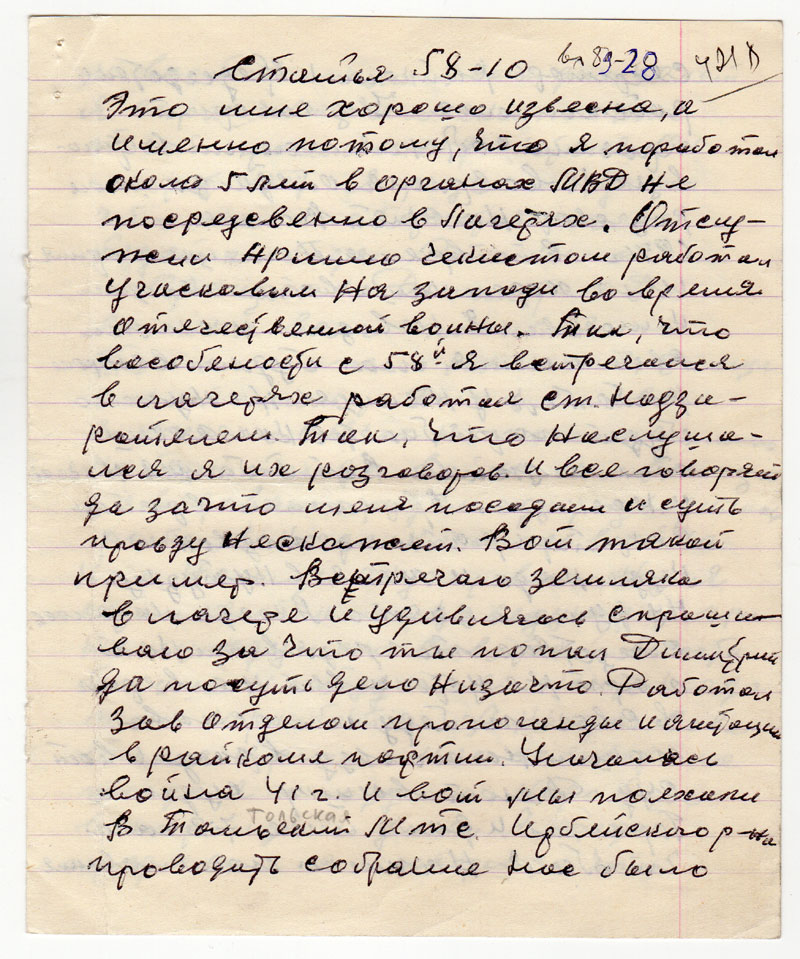 Статья 58-10 89-28
Это мне хорошо извесна, а
именно потому, что я поработал
окола 5 лет в органах МВД не
посредсвенно в Лагерях. Отслу-
жил Армию Чекистом работал
Участковым На запади во время
Отечественной воины. Так, что
вособености с 58й я встречался
в лагерях работая ст. Надзи-
рателем. Так, что Наслуша-
лся я их розговоров. И все говорят
да зачто меня посодили и суть
правду Нескажет. Вот такой
пример. Встречаю земляка
в лагере и удивляюсь спраши-
ваю за что ты попал Дмитрий
да посуть дело Низачто. Работал
Зав Отделом пропоганды и агитации
в райкоме партии. Началась
война 41 г. И вот Мы поехали
Тольская
В Мтс. р-на
проводить собрание Нас было